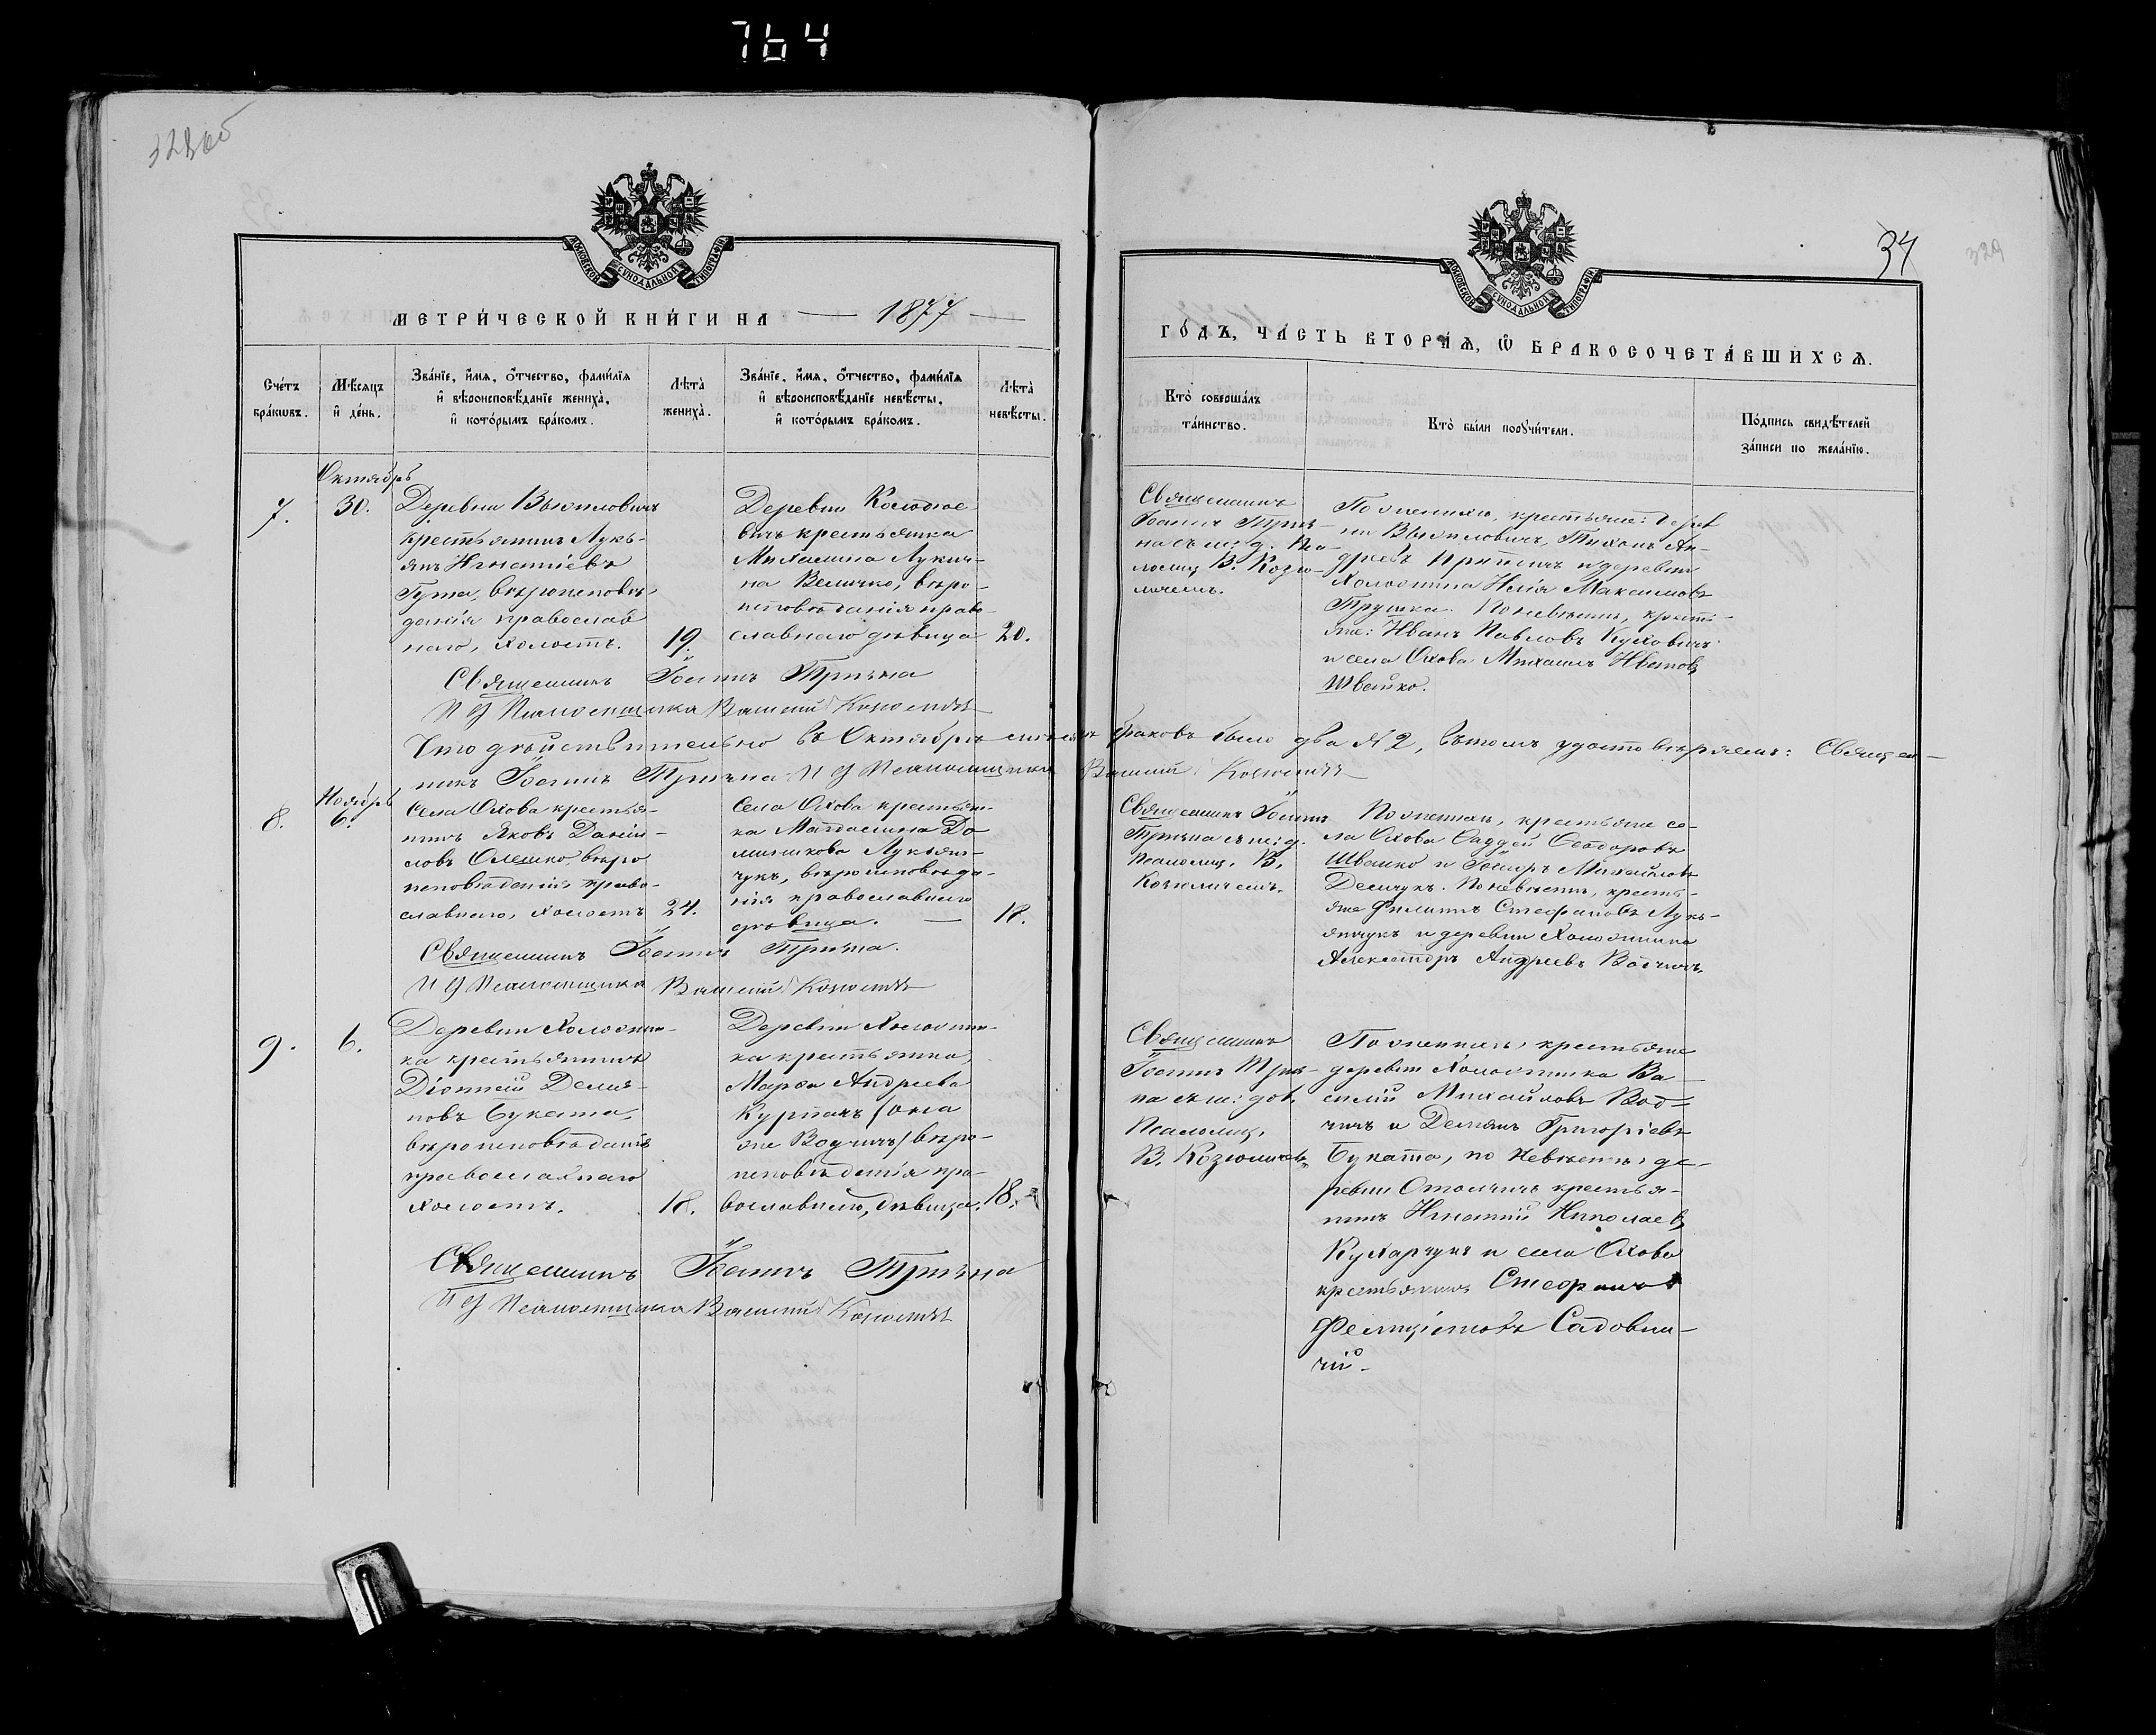 764
328об
34
329
МОСКОВСКОЙ СУНОДАЛЬНОЙ ТИПОГРАФІИ
МОСКОВСКОЙ СУНОДАЛЬНОЙ ТИПОГРАФІИ
МЕТРИ́ЧЕСКОЙ КНИ́ГИ НА — 1877 —
ГО́ДЪ, ЧА́СТЬ ВТОРА́Я, Ѽ БРАКОСОЧЕТА́ВШИХСЯ.
Сче́тъ бра́кѡвъ.
Мѣ́сяцъ и҆ де́нь.
Зва́нїе, и҆́мя, ѻ҆́тчество, фами́лїя и҆ вѣроисповѣ́данїе жениха̀, и҆ кото́рымъ бра́комъ.
Лѣта̀ жениха̀.
Зва́нїе, и҆́мя, ѻ҆́тчество, фами́лїя и҆ вѣроисповѣ́данїе невѣ́сты, и҆ кото́рымъ бра́комъ.
Лѣта̀ невѣ́сты.
Кто̀ соверша́лъ та́инство.
Кто̀ бы́ли порꙋчи́тели.
По́дпись свидѣ́телей за́писи по жела́нїю.
Октябрь
7.
30.
Деревни Выжиловичъ
крестьянинъ Лукь-
янъ Игнатіевъ
Гута, вѣроисповѣ-
данія православ
наго, холостъ.
19.
Деревни
вичъ крестьянка
Михалина Лукич-
на Величко, вѣро-
исповѣданія право-
славнаго дѣвица
20.
Священникъ
Іоаннъ Трич-
на съ и: д. Пса-
ломщ. В. Козю-
личемъ.
По женихѣ, крестьяне: дерев
ни Выжиловичъ, Тихонъ Ан-
дреевъ и деревни
Холостина Илія Максимовъ
Трушка. По невѣстѣ, кресть-
яне: Иванъ Павловъ Куховичъ
и села Охова Михаилъ Ивановъ
Швайко.
Священникъ Іоаннъ Тричка
И Д Псаломщика Василій
Что дѣйствительно въ Октябрѣ мѣсяцѣ браковъ было два № 2, въ томъ удостовѣряемъ: Священ-
никъ Іоаннъ И Д Псаломщика Василій
Ноябрь
8.
6.
Села Охова крестья-
нинъ Яковъ Даніи-
ловъ Олешко вѣро
исповѣданія право-
славнаго, холостъ
24.
Села Охова крестьян-
ка Магдалина До
миникова Лукьян-
чукъ, вѣроисповѣда-
нія православнаго
дѣвица. —
18.
Священникъ Іоаннъ
съ и: д.
Псаломщ. В.
Козюличемъ.
По женихѣ, крестьяне се-
ла Охова Фаддей Ѳеодоровъ
Швайко и Михайловъ
Демчукъ. По невѣстѣ, кресть-
яне Филиппъ Стефановъ Лукь-
янчукъ и деревни Холостина
Александръ Андреевъ Водчичъ.
Священникъ Іоаннъ
И Д Псаломщика Василій
9.
6.
Деревни Холостин-
ка крестьянинъ
Діонисій Демья-
новъ Буката,
вѣроисповѣданія
православнаго
холостъ.
18.
Деревни Холостин-
ка крестьянка,
Марѳа Андреева
Курпачъ (она
же Водчичъ) вѣро-
исповѣданія пра-
вославнаго, дѣвица.
18.
Священникъ
Іоаннъ
на съ и: дол.
Псаломщ.
В. Козюличемъ
По женихѣ, крестьяне
деревни Холостинка Ва-
силій Михайловъ Вод-
чичъ и Демьянъ Григорьевъ
Буката, по невѣстѣ: де-
ревни Отолчичъ крестья-
нинъ Игнатій Николаевъ
Кухарчукъ и села Охова
крестьянинъ Стефанъ
Фелиціановъ Садовни-
чій.
Священникъ Іоаннъ
И Д Псаломщика Василій